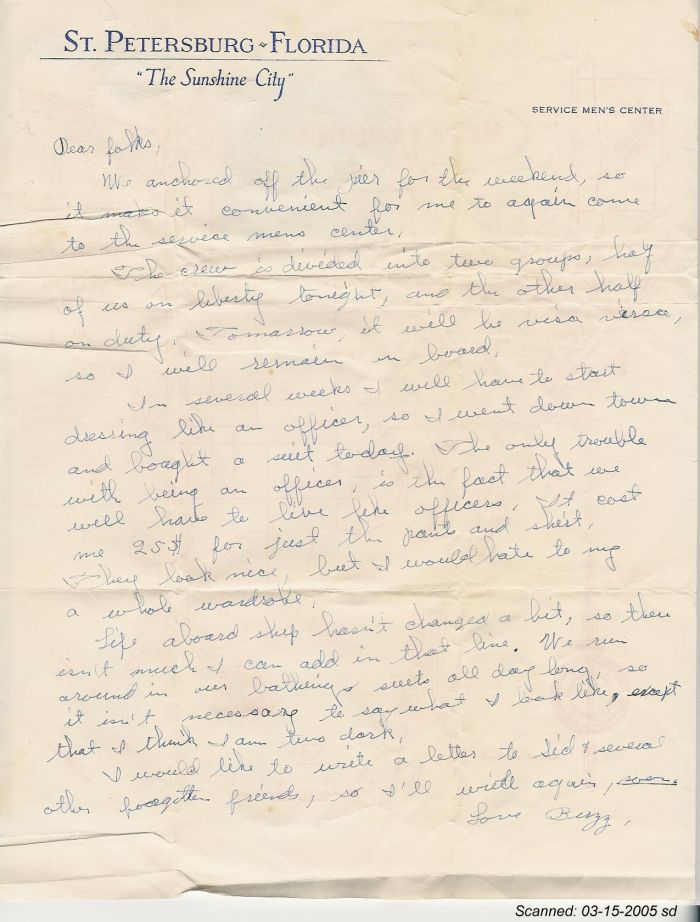 ST. PETERSBURG - FLORIDA
"The Sunshine City"
SERVICE MEN'S CENTER
Dear folks,
We anchored off the pier for the weekend, so
it makes it convenient for me to again come
to the service mens center.
The crew is divided into two groups, half
of us on liberty tonight, and the other half
on duty. Tomarrow, it will be visa versa,
so I will remain on board.
In several weeks I will have to start
dressing like an officer, so I went down town
and bought a suit today. The only trouble
with being an officer, is the fact that we
will have to live like officers. It cost
me 25$ for just the pants and shirt.
They look nice, but I would hate to
a whole wardrobe.
Life aboard ship hasn't changed a bit, so there
isn't much I can add in that line. We run
around in our bathing suits all day long, so
it isn't necessary to say what I look like, except
that I think I am two dark.
I would like to write a letter to Sid & several
other forgotten friends, so I'll write again, soon.
Love Buzz,
Scanned: 03-15-2005 sd